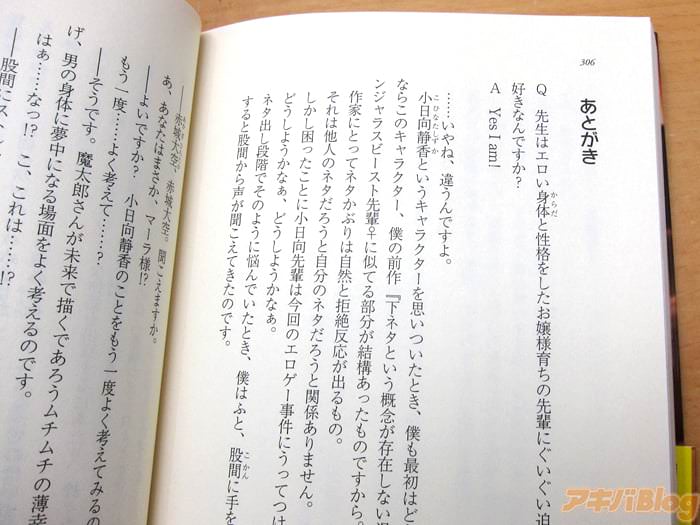 306
あとがき
Q 先生はエロい身体と性格をしたお嬢様育ちの先輩にぐいぐい迫
からだ
好きなんですか?
A Yes I am!
……いやね、違うんですよ。
小日向静香というキャラクターを思いついたとき、僕も最初はど
こひなたしずか
ならこのキャラクター、僕の前作『下ネタという概念が存在しない退
ンジャラスビースト先輩♀に似てる部分が結構あったものですから。
作家にとってネタかぶりは自然と拒絶反応が出るもの。
それは他人のネタだろうと自分のネタだろうと関係ありません。
しかし困ったことに小日向先輩は今回のエロゲー事件にうってつけ
どうしようかなぁ、どうしようかなぁ。
ネタ出し段階でそのように悩んでいたとき、僕はふと、股間に手を
こかん
すると股間から声が聞こえてきたのです。
――赤城大空、赤城大空。聞こえますか。
あ、あなたはまさか、マーラ様!?
――よいですか? 小日向静香のことをもう一度よく考えてみるの
もう一度……よく考えて……?
――そうです。魔太郎さんが未来で描くであろうムチムチの薄幸
げ、男の身体に夢中になる場面をよく考えるのです。
はぁ……なっ!? こ、これは……!?
――股間にスト
アキバBlog